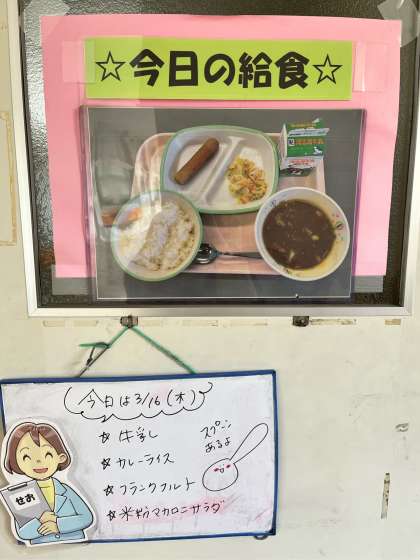 ☆今日の給食☆
今日は3/16(木)
☆ 牛乳
☆ カレーライス
☆ フランクフルト
☆ 米粉マカロニサラダ
スプーン
あるよ
せお